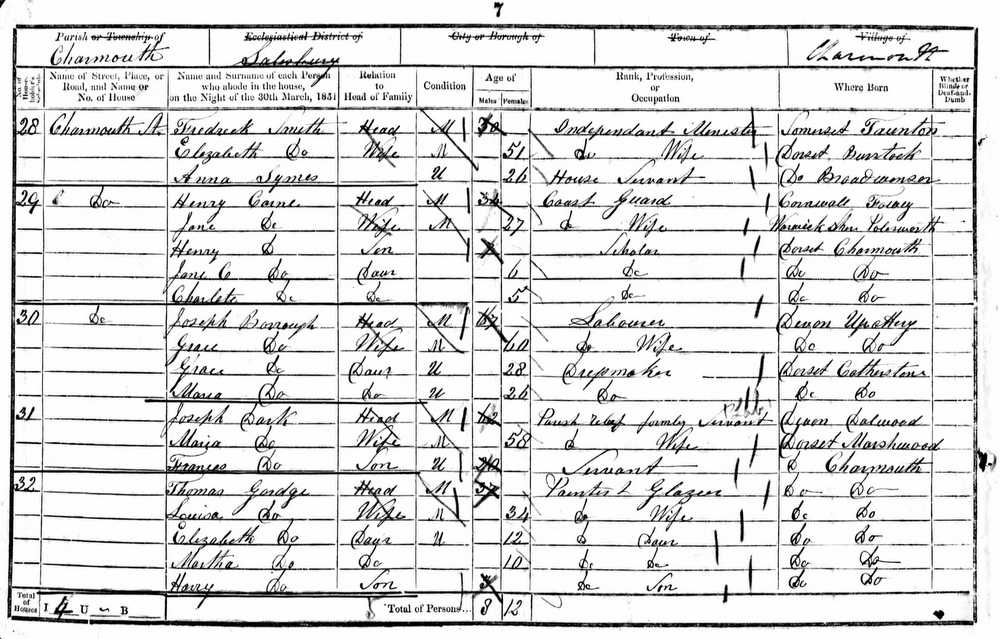 7
Parish or Township of Ecclesiastical District of City or Borough of Town of Village of
Charmouth Salisbury Charmouth
Name of Street, Place, or Road, and Name or No. of House Name and Surname of each Person who abode in the house, on the Night of the 30th March, 1851 Relation to Head of Family Condition Age of Males Females Rank, Profession, or Occupation Where Born Whether Blind, or Deaf-and-Dumb
28 Charmouth St. Fredrick Smith Head M 50 Independant Minester Somerset Taunton
Elizabeth Do Wife M 51 Do Wife Dorset Burstock
Anna Symes U 26 House Servant Do Broadwinsor
29 Do Henry Carne Head M 34 Coast Guard Cornwall Fowey
Jane Do Wife M 27 Do Wife Warwick Shire Polesworth
Henry D Son 7 Scholar Dorset Charmouth
Jane C Do Daur 6 Do Do Do
Charlote Do Do 5 Do Do Do
30 Do Joseph Borrough Head M 67 Labourer Devon Upottery
Grace Do Wife M 60 Do Wife Do Do
Grace Do Daur U 28 Dressmaker Dorset Catherstone
Maria Do Do U 26 Do Do Do
31 Joseph Dark Head M 62 Parish relief formly Servant Devon Dalwood
Maria Do Wife M 58 D Wife Dorset Marshwood
Frances Do Son U 20 Servant D Charmouth
32 Thomas Gordge Head M 37 Painter & Glazier Do Do
Louisa Do Wife M 34 Do Wife Do Do
Elizabeth Do Daur U 12 D Daur Do Do
Martha Do Do 10 Do Do Do Do
Harry Do Son 3 Do Son Do Do
Total of Houses I 4 U B Total of Persons... 8 12